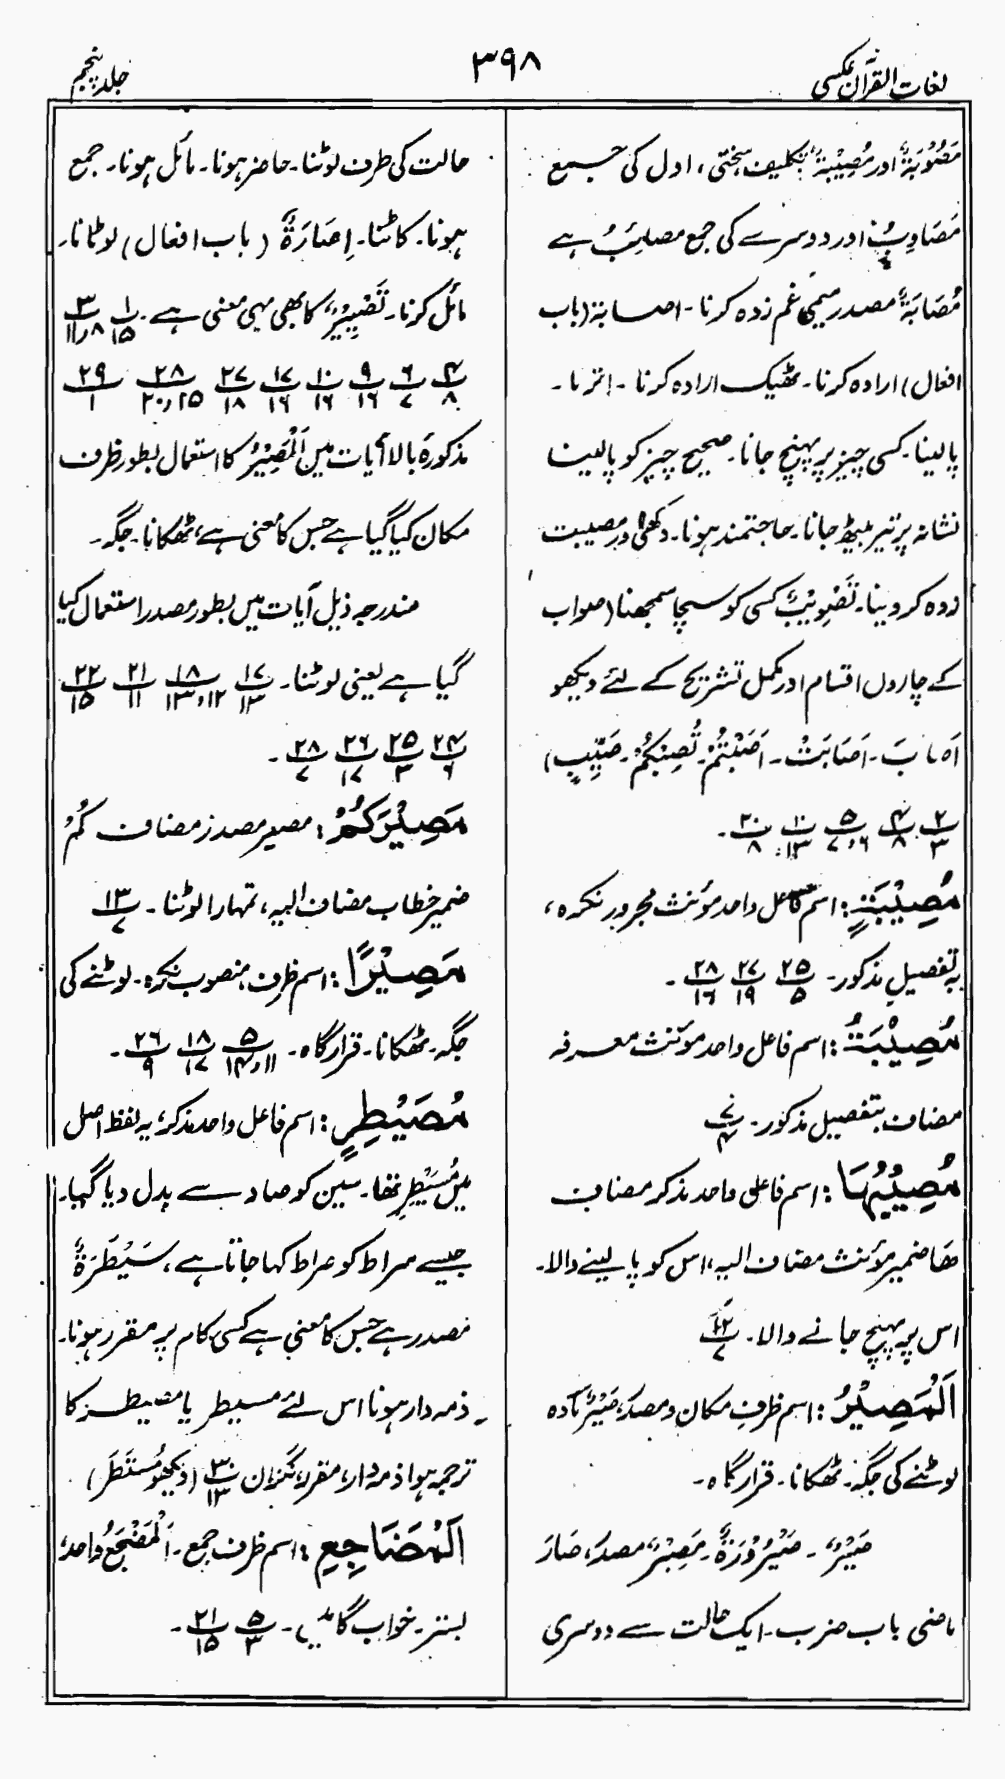 لغات القرآن عکسی
۳۹۸
جلد پنجم
مَصُوْبَۃٌ اور مُصِیْبَۃٌ تکلیف سختی، اول کی جمیع
مَصَاوِبُ اور دوسرے کی جمع مصائبُ ہے
مُصَابَۃٌ مصدر میمی غم زدہ کرنا۔ اصابۃ (باب
افعال) ارادہ کرنا۔ ٹھیک ارادہ کرنا۔ اترنا۔
پالینا۔ کسی چیز پر پہنچ جانا۔ صحیح چیز کو پالینا
نشانہ پر تیر بیٹھ جانا۔ حاجتمند ہونا۔ دکھی اور مصیبت
زدہ کر دینا۔ تَصْوِیْبٌ کسی کو سچا سمجھنا (صواب
کے چاروں اقسام اور مکمل تشریح کے لئے دیکھو
اَصَابَ۔ اَصَابَتْ۔ اَصَبْتُمْ۔ تُصِبْکُمْ۔ صَیِّبٍ)
۲/۳ ۴/۸ ۵/۶،۷ ۱۰/۱۳ ۲۰/۸۔
مُصِیْبَۃٍ: اسم فاعل واحد مؤنث مجرور نکرہ،
بہ تفصیل مذکور۔ ۲۵/۵ ۲۷/۱۹ ۲۸/۱۶۔
مُصِیْبَۃُ: اسم فاعل واحد مؤنث معرفہ
مضاف بتفصیل مذکور۔
مُصِیْبُہَا: اسم فاعل واحد مذکر مضاف
ھَا ضمیر مؤنث مضاف الیہ، اس کو پا لینے والا۔
اس پر پہنچ جانے والا۔ ۱۲/۷
اَلْمَصِیْرُ: اسم ظرفِ مکان و مصدر، صَیْرٌ مادہ
لوٹنے کی جگہ۔ ٹھکانا۔ قرار گاہ۔
صَیْرٌ۔ صَیْرُوْرَۃٌ۔ مَصِیْرٌ مصدر، صَارَ
ماضی باب ضرب۔ ایک حالت سے دوسری
حالت کی طرف لوٹنا۔ حاضر ہونا۔ مائل ہونا۔ جمع
ہونا۔ کاٹنا۔ اِصَارَۃٌ (باب افعال) لوٹانا۔
مائل کرنا۔ تَصْیِیْرٌ کا بھی یہی معنی ہے۔ ۱/۱۵ ۳/۸،۱۱
۴/۸ ۶/۷ ۹/۱۶ ۱۰/۱۶ ۱۷/۱۶ ۲۷/۱۸ ۲۸/۱۵،۲۰ ۲۹/۱
مذکورۂ بالا آیات میں اَلْمَصِیْرُ کا استعمال بطور ظرف
مکان کیا گیا ہے جس کا معنی ہے، ٹھکانا۔ جگہ۔
مندرجہ ذیل آیات میں بطور مصدر استعمال کیا
گیا ہے یعنی لوٹنا۔ ۱۷/۱۳ ۱۸/۱۲،۱۳ ۲۱/۱۱ ۲۲/۱۵
۲۴/۶ ۲۵/۳ ۲۶/۱۷ ۲۸/۷۔
مَصِیْرَکُمْ: مصیر مصدر مضاف کُمْ
ضمیر خطاب مضاف الیہ، تمہارا لوٹنا۔ ۱۳/۷
مَصِیْرًا: اسم ظرف، منصوب نکرہ۔ لوٹنے کی
جگہ۔ ٹھکانا۔ قرار گاہ۔ ۵/۱۱،۱۴ ۱۸/۱۷ ۲۶/۹۔
مُصَیْطِرٍ: اسم فاعل واحد مذکر، یہ لفظ اصل
میں مُسَیْطِرٍ تھا۔ سین کو صاد سے بدل دیا گیا۔
جیسے سراط کو صراط کہا جاتا ہے، سَیْطَرَۃٌ
مصدر ہے جس کا معنی ہے کسی کام پر مقرر ہونا۔
ذمہ دار ہونا اس لئے مسیطر یا مصیطر کا
ترجمہ ہوا ذمہ دار، مقرر، نگران ۳۰/۱۳ (دیکھو مُسْتَطَر)
اَلْمَضَاجِعِ: اسم ظرف جمع۔ اَلْمَضْجَعُ واحد،
بستر۔ خواب گاہیں۔ ۵/۳ ۲۱/۱۵۔